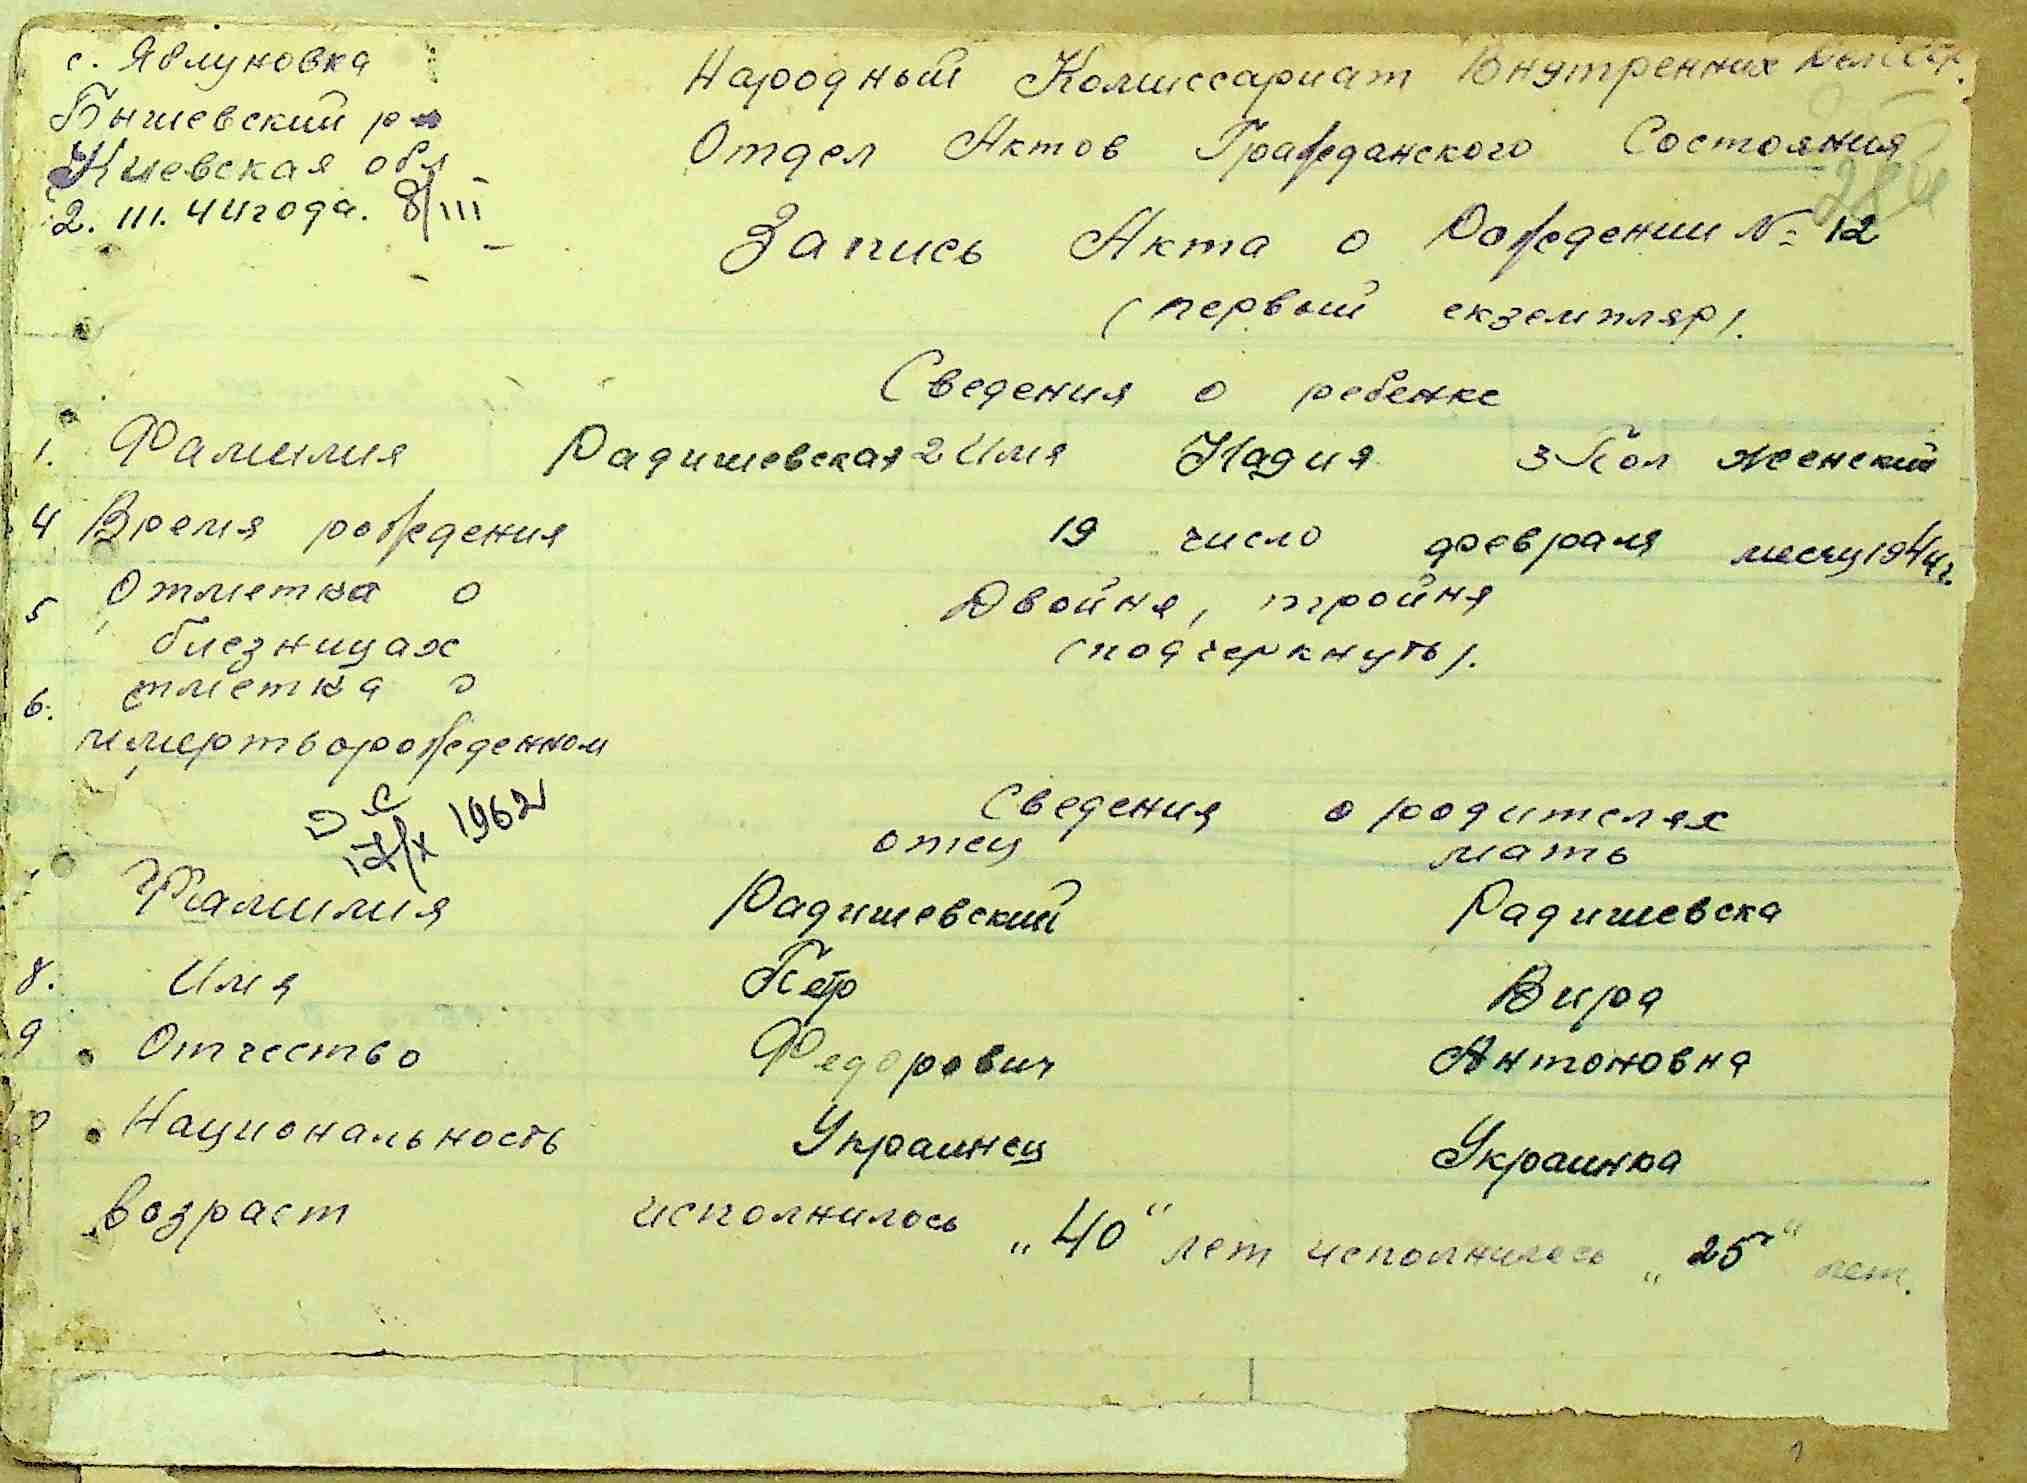 с. Яблуновка
Бышевский р-н
Киевская обл
2. III. 44 года. 8/III
Народный Комиссариат Внутренних
Отдел Актов Гражданского Состояния
284
Запись Акта о Рождении № 12
(первый екземпляр).
Сведения о ребенке
1. Фамилия Радишевская 2 Имя Надия 3 Пол женский
4 Время рождения 19 число февраля месяц 1944 г.
5 Отметка о близницах Двойня, тройня
(подчеркнуть).
6. отметка о
мертворожденном
17/X 1962
Сведения о родителях
отец мать
Фамилия Радишевский Радишевска
8. Имя Петр Вира
9 Отчество Федорович Антоновна
Национальность Украинец Украинка
возраст исполнилось „40“ лет исполнилось „25“ лет.